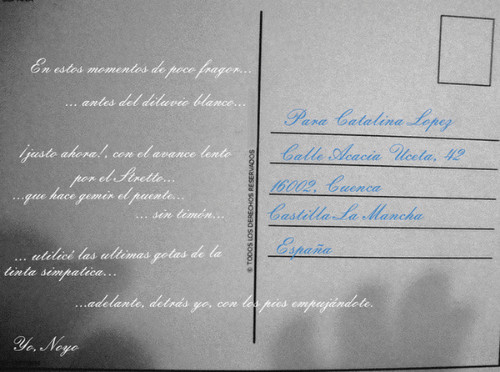 En estos momentos de poco fragor...
... antes del diluvio blanco...
¡justo ahora!, con el avance lento
por el Stretto...
...que hace gemir el puente...
... sin timón...
... utilicé las ultimas gotas de la
tinta simpatica...
...adelante, detrás yo, con los pies empujándote.
Yo, Noyo
© TODOS LOS DERECHOS RESERVADOS
Para Catalina Lopez
Calle Acacia Uceta, 42
16002, Cuenca
Castilla-La Mancha
España